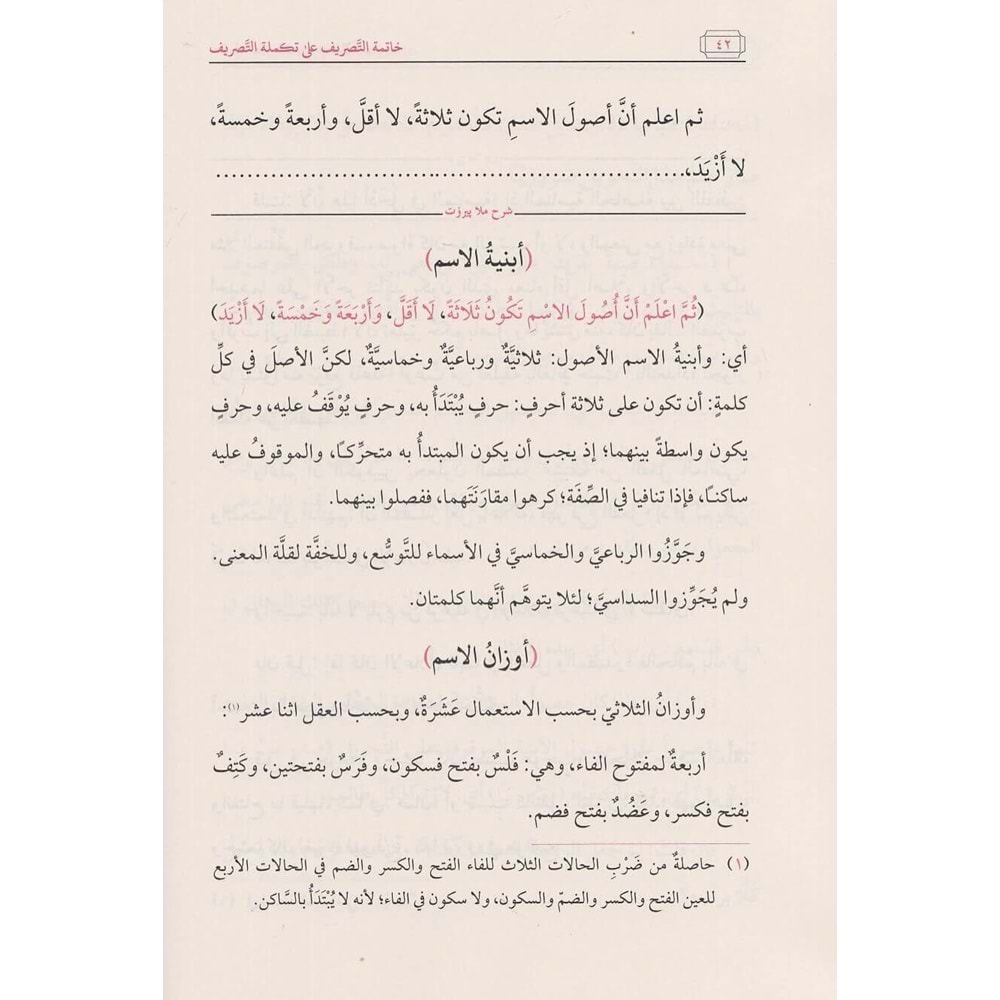 ٤٢
خاتمة التَّصريف على تكملة التَّصريف
ثم اعلم أنَّ أصولَ الاسمِ تكون ثلاثةً، لا أقلَّ، وأربعةً وخمسةً،
لا أَزْيَدَ،............................................................
شرح ملا پيرزت
(أبنيةُ الاسم)
(ثُمَّ اعْلَمْ أَنَّ أُصُولَ الاسْمِ تَكُونُ ثَلَاثَةً، لَا أَقَلَّ، وَأَرْبَعَةً وَخَمْسَةً، لَا أَزْيَدَ)
أي: وأبنيةُ الاسم الأصول: ثلاثيَّةٌ ورباعيَّةٌ وخماسيَّةٌ، لكنَّ الأصلَ في كلِّ
كلمةٍ: أن تكون على ثلاثة أحرفٍ: حرفٍ يُبْتَدَأُ به، وحرفٍ يُوْقَفُ عليه، وحرفٍ
يكون واسطةً بينهما؛ إذ يجب أن يكون المبتدأُ به متحرِّكًا، والموقوفُ عليه
ساكنًا، فإذا تنافيا في الصِّفَة؛ كرهوا مقارَنَتَهما، ففصلوا بينهما.
وجَوَّزُوا الرباعيَّ والخماسيَّ في الأسماء للتَّوسُّع، وللخفَّة لقلَّة المعنى.
ولم يُجَوِّزوا السداسيَّ؛ لئلا يتوهَّم أنَّهما كلمتان.
(أوزانُ الاسم)
وأوزانُ الثلاثيّ بحسب الاستعمال عَشَرَةٌ، وبحسب العقل اثنا عشر(١):
أربعةٌ لمفتوح الفاء، وهي: فَلْسٌ بفتح فسكون، وفَرَسٌ بفتحتين، وكَتِفٌ
بفتح فكسر، وعَضُدٌ بفتح فضم.
(١) حاصلةٌ من ضَرْبِ الحالات الثلاث للفاء الفتح والكسر والضم في الحالات الأربع
للعين الفتح والكسر والضمّ والسكون، ولا سكون في الفاء؛ لأنه لا يُبْتَدَأُ بالسَّاكن.